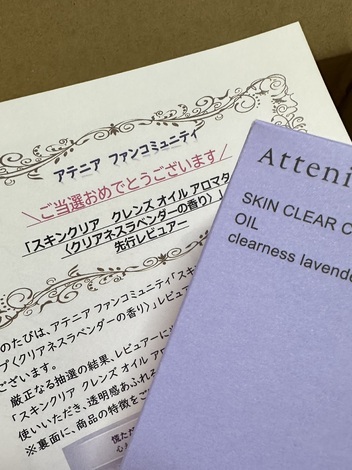 アテニア ファンコミュニティ
＼ご当選おめでとうございます／
「スキンクリア クレンズ オイル アロマタ
〈クリアネスラベンダーの香り〉」
先行レビュアー
のたびは、アテニア ファンコミュニティ「スキ
プ〈クリアネスラベンダーの香り〉」レビュ
ございます。
厳正なる抽選の結果、レビュアーに
「スキンクリア クレンズ オイル アロ
使いいただき、透明感あふれる
※裏面に、商品の特徴をご
慌ただ
Atteni
SKIN CLEAR C
OIL
clearness lavende